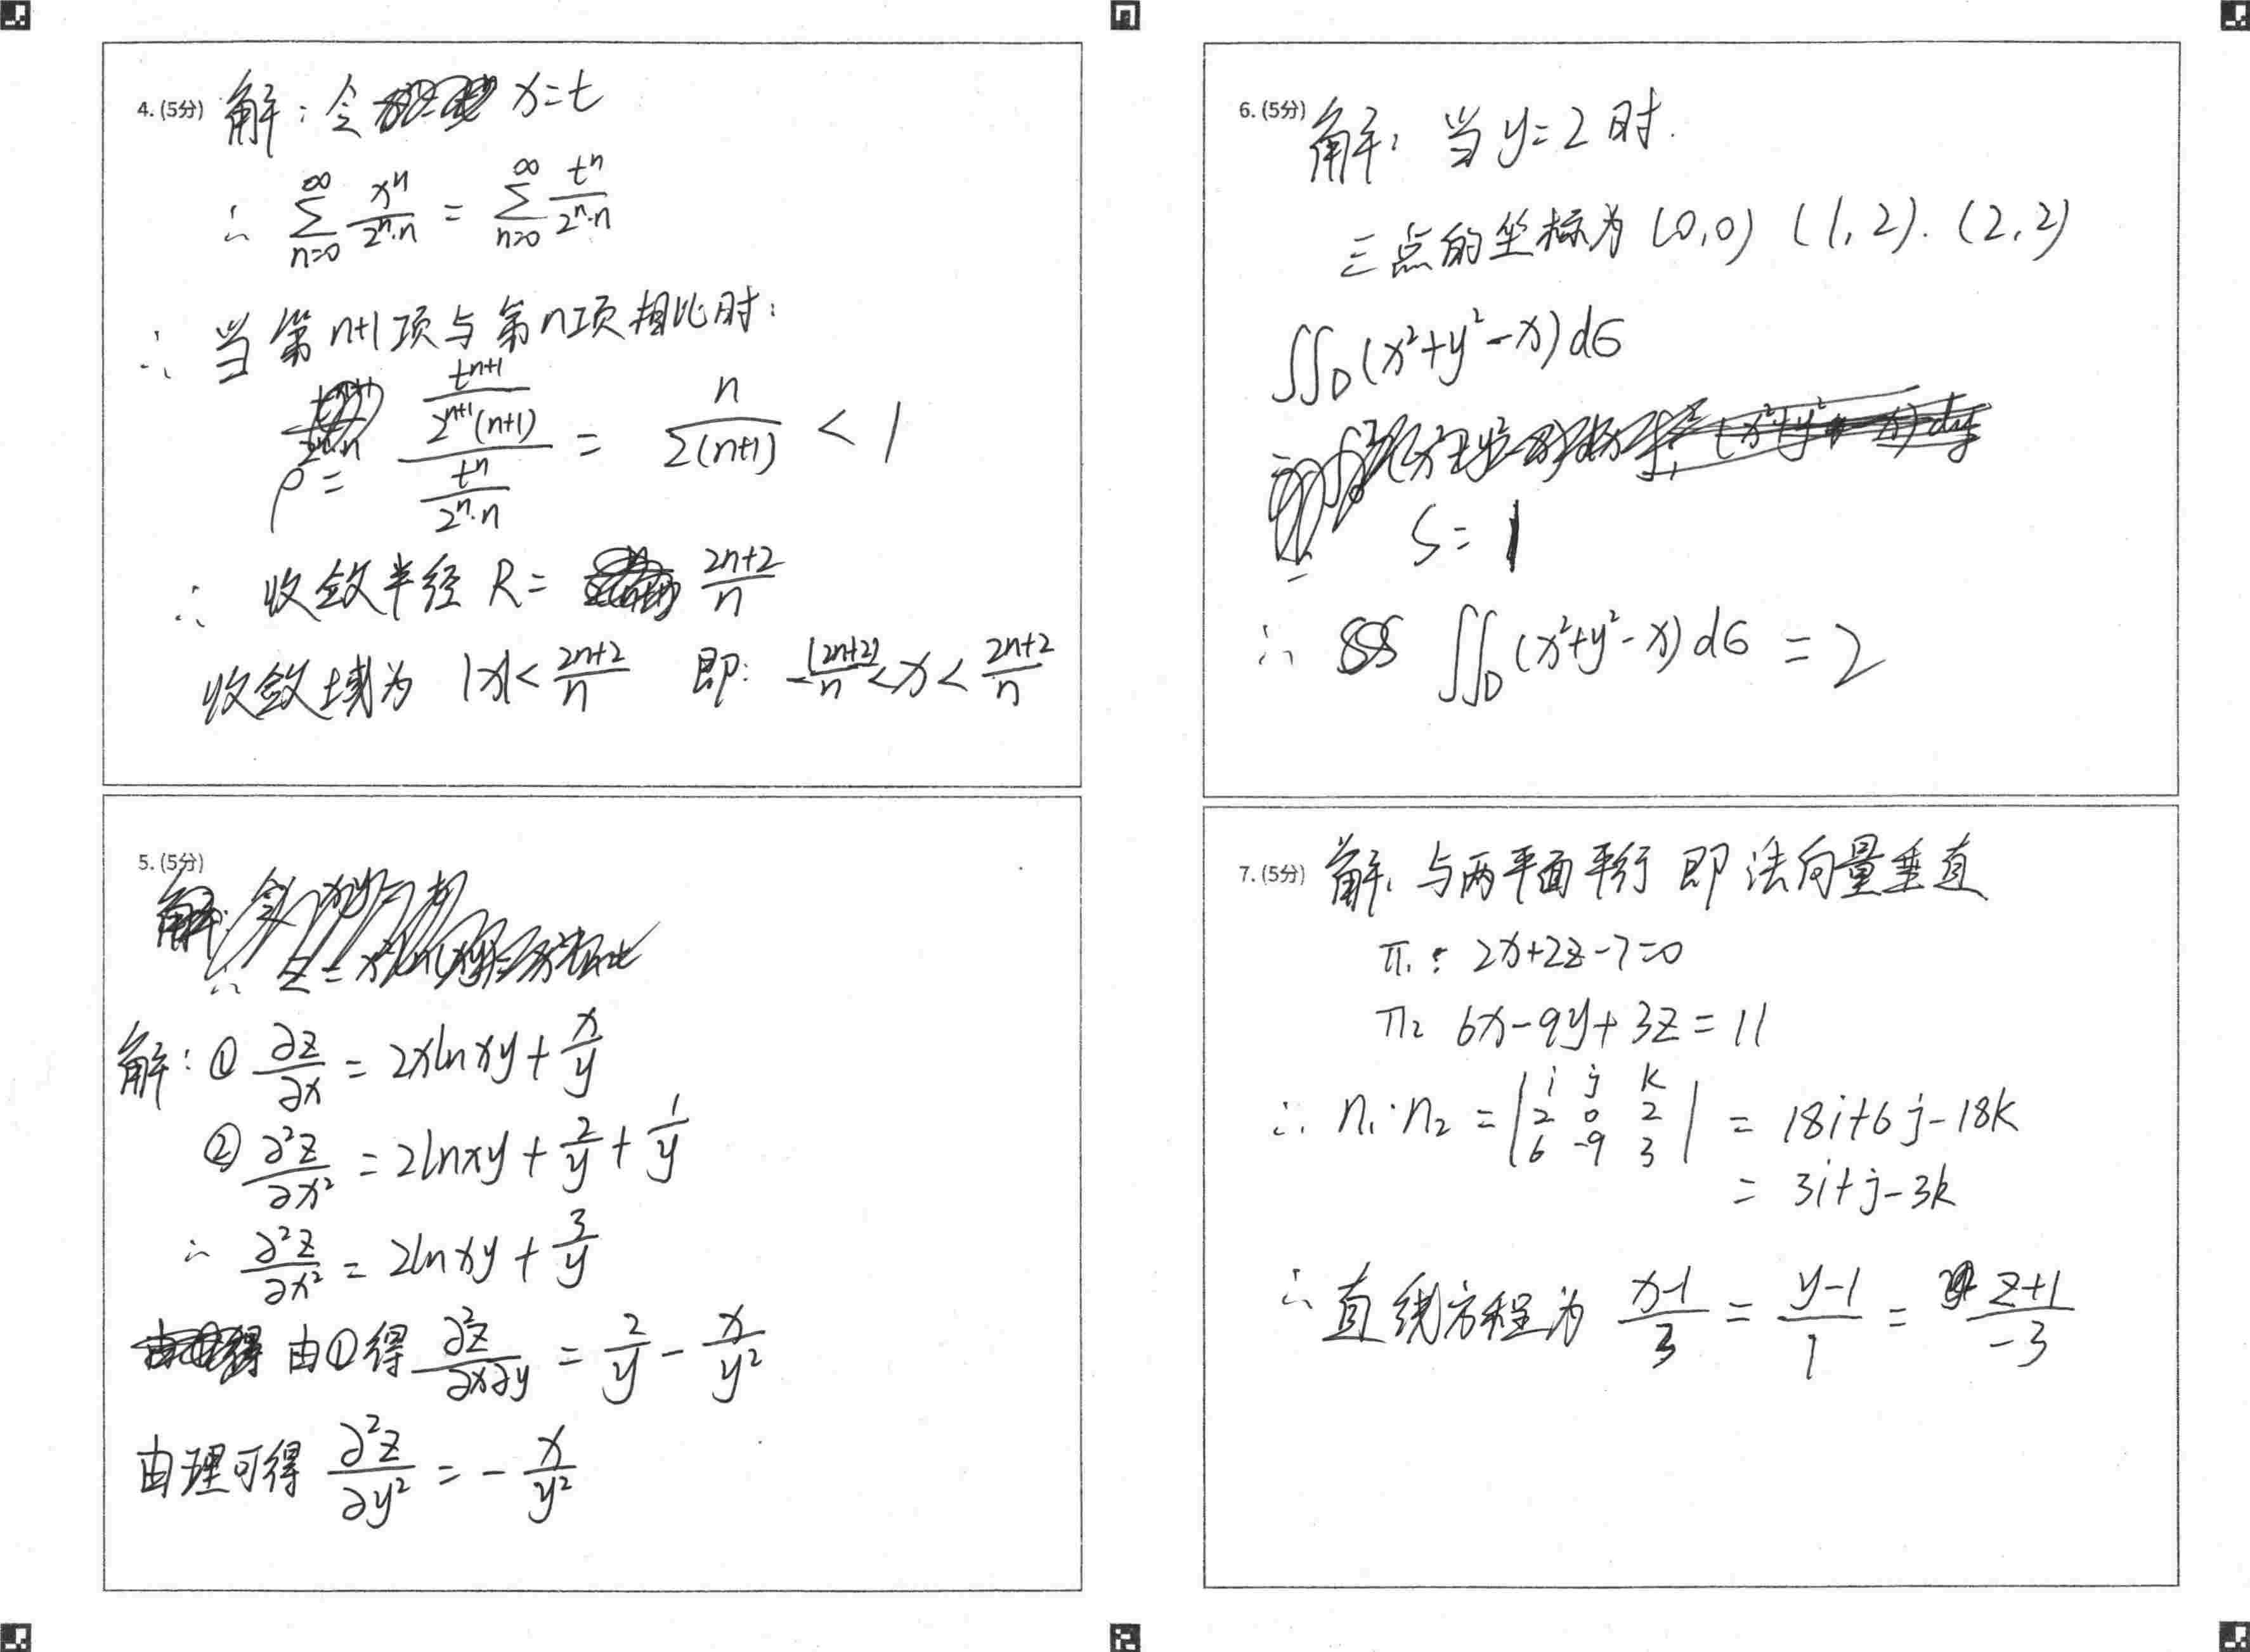 4.(5分) 解：令 x=t
∴ ∑_{n=0}^{∞} x^n/(2^n·n) = ∑_{n=0}^{∞} t^n/(2^n·n)
∴ 当第n+1项与第n项相比时：
ρ= (t^{n+1}/(2^{n+1}(n+1)))/(t^n/(2^n·n)) = n/(2(n+1)) < 1
∴ 收敛半径 R= (2n+2)/n
收敛域为 |x|< (2n+2)/n 即: -(2n+2)/n < x < (2n+2)/n
5.(5分)
解：① ∂z/∂x = 2xlnxy + x/y
② ∂²z/∂x² = 2lnxy + 2/y + 1/y
∴ ∂²z/∂x² = 2lnxy + 3/y
由①得 ∂²z/∂x∂y = 2/y - x/y²
由理可得 ∂²z/∂y² = - x/y²
6.(5分) 解：当 y=2 时.
三点的坐标为 (0,0) (1,2). (2,2)
∬_D (x²+y²-x)dσ
S=1
∴ ∬_D (x²+y²-x)dσ = 2
7.(5分) 解：与两平面平行 即 法向量垂直
π₁: 2x+2z-7=0
π₂ 6x-9y+3z=11
∴ n₁·n₂ = |i j k; 2 0 2; 6 -9 3| = 18i+6j-18k
= 3i+j-3k
∴ 直线方程为 (x-1)/3 = (y-1)/1 = (z+1)/-3